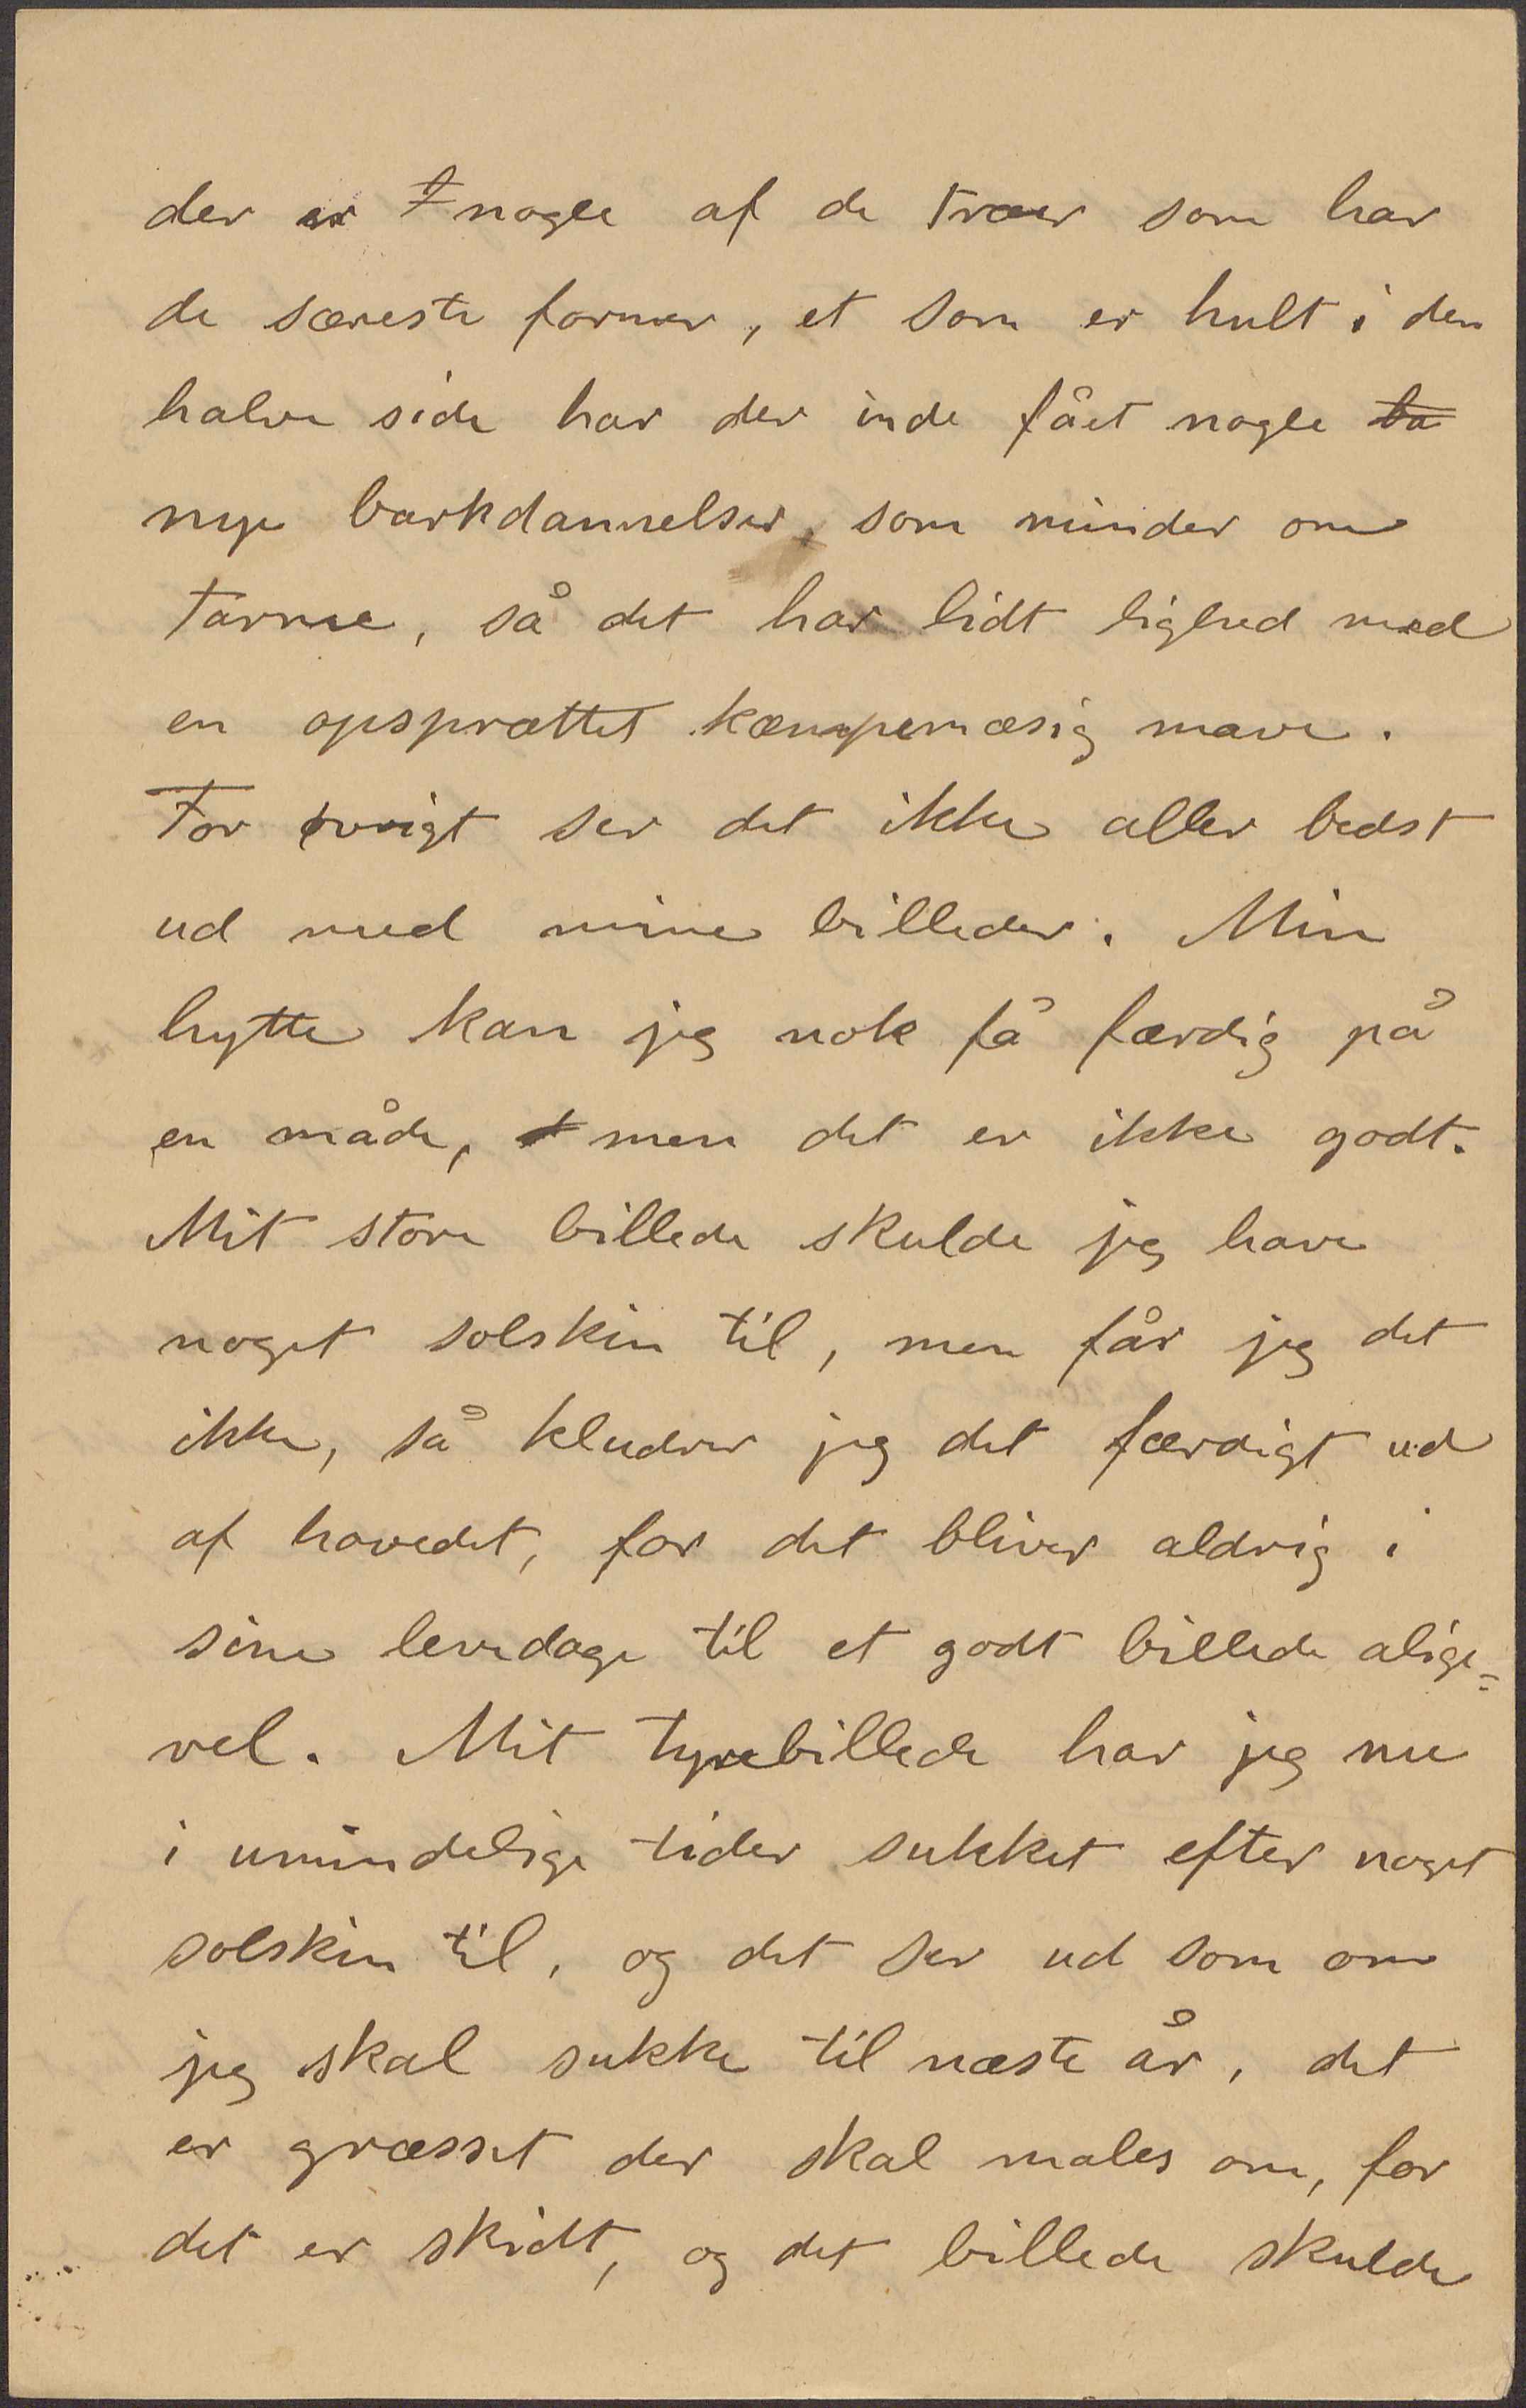 der er nogle af de træer som har
de særeste former, et som er hult i den
halve side har der inde fået nogle ba
nye barkdannelser, som minder om
tarme, så det har lidt lighed med
en opsprættet kæmpemæsig mave.
For øvrigt ser det ikke aller bedst
ud med mine billeder. Min
hytte kan jeg nok få færdig på
en måde, men det er ikke godt.
Mit store billede skulde jeg have
noget solskin til, men får jeg det
ikke, så kludrer jeg det færdigt ud
af hovedet, for det bliver aldrig i
sine levedage til et godt billede alige=
vel. Mit tyrebillede har jeg nu
i umindelige tider sukket efter noget
solskin til, og det ser ud som om
jeg skal sukke til næste år, det
er græsset der skal males om, for
det er skidt, og det billede skulde